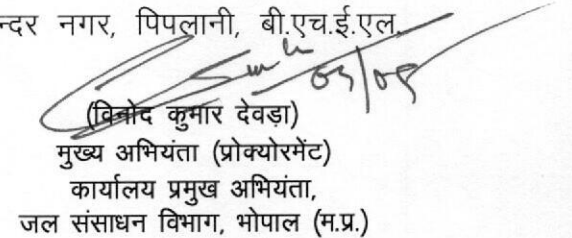 न्दर नगर, पिपलानी, बी.एच.ई.एल.
03/09
(विनोद कुमार देवड़ा)
मुख्य अभियंता (प्रोक्योरमेंट)
कार्यालय प्रमुख अभियंता,
जल संसाधन विभाग, भोपाल (म.प्र.)